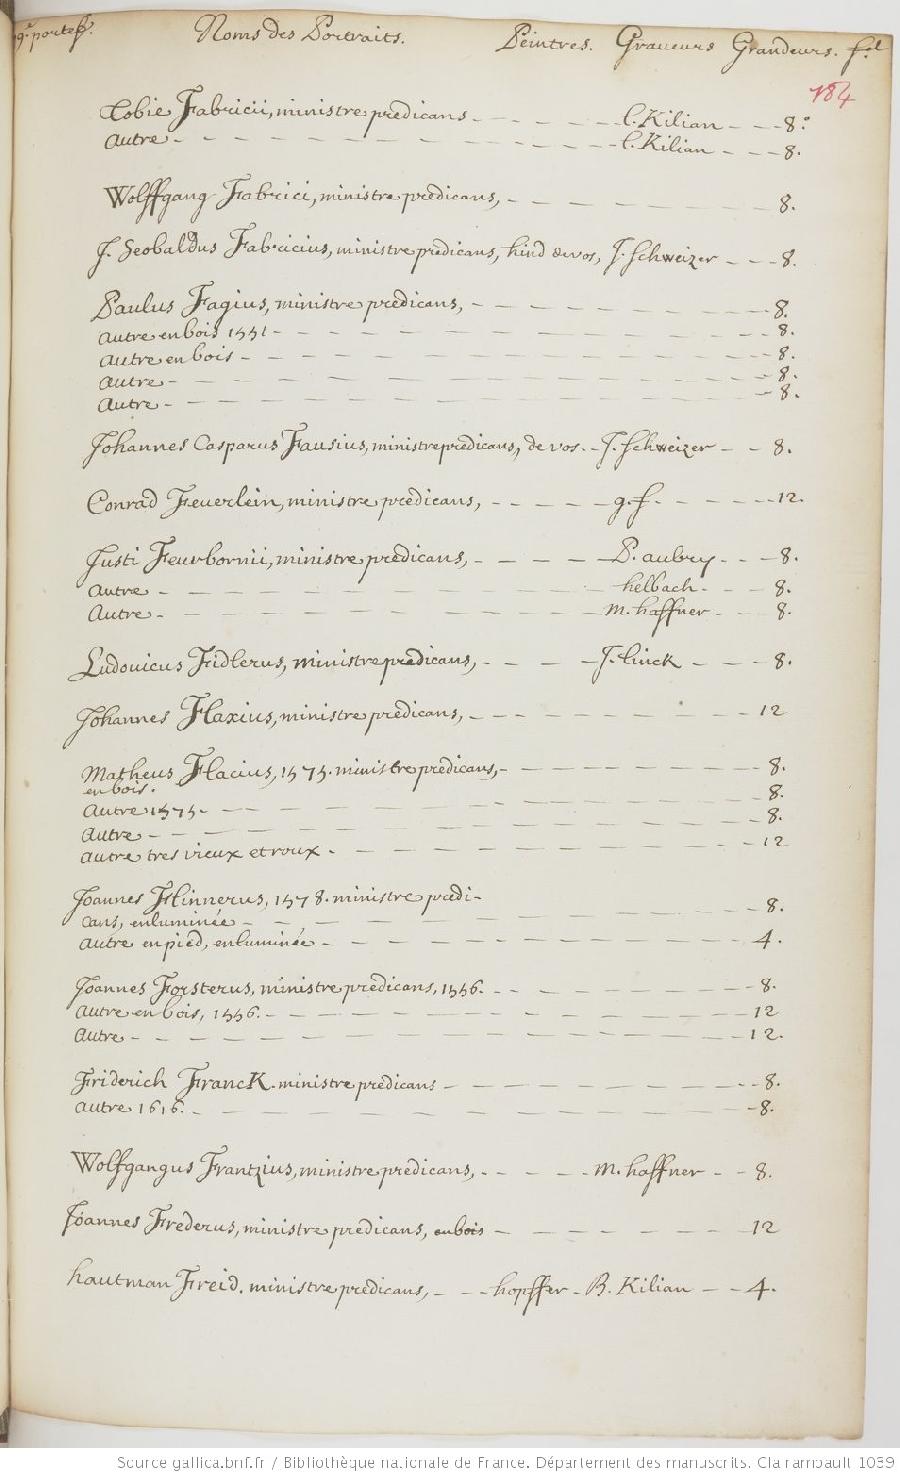 9e portef. Noms des Portraits. Peintres. Graueurs Grandeurs. fol
184
Tobie Fabricii, ministre prédicans - - - - - l. Kilian - - - 8°
autre - - - - - - - - - - l. Kilian - - - 8.
Wolffgang Fabrici, ministre prédicans, - - - - - 8.
J. Seobaldus Fabricius, ministre prédicans, hind devos, J. Schweizer - - - 8.
Paulus Fagius, ministre prédicans, - - - - - 8.
autre en bois 1551 - - - - - 8.
autre en bois - - - - - 8.
autre - - - - - 8.
autre - - - - - 8.
Johannes Casparus Fausius, ministre prédicans, de vos. - J. Schweizer - - 8.
Conrad Feuerlein, ministre prédicans, - - - - - g. f. - - - - - 12.
Justi Feurbornii, ministre prédicans, - - - - - P. aubry - - - 8.
autre - - - - - helbach - - - 8.
autre - - - - - m. haffner - - - 8.
Ludouicus Fidlerus, ministre prédicans, - - - - J. linck - - - 8.
Johannes Flaxius, ministre prédicans, - - - - - 12
Matheus Flacius, 1575. ministre prédicans, - - - - - 8.
en bois. - - - - - 8.
autre 1575 - - - - - 8.
autre - - - - - 12
autre tres vieux et roux - - - - -
Joannes Flinnerus, 1578. ministre prédi-
cans, enluminée - - - - - 8.
autre en pied, enluminée - - - - - 4.
Joannes Forsterus, ministre prédicans, 1556. - - - - - 8.
autre en bois, 1556. - - - - - 12
autre - - - - - 12.
Friderich Franck. ministre prédicans - - - - - 8.
autre 1616. - - - - - 8.
Wolfgangus Frantzius, ministre prédicans, - - - - - m. haffner - - 8.
Joannes Frederus, ministre prédicans, en bois - - - - - 12
hautman Freid. ministre prédicans, - - - hopffer - B. Kilian - - 4.
Source gallica.bnf.fr / Bibliothèque nationale de France. Département des manuscrits. Clairambault 1039